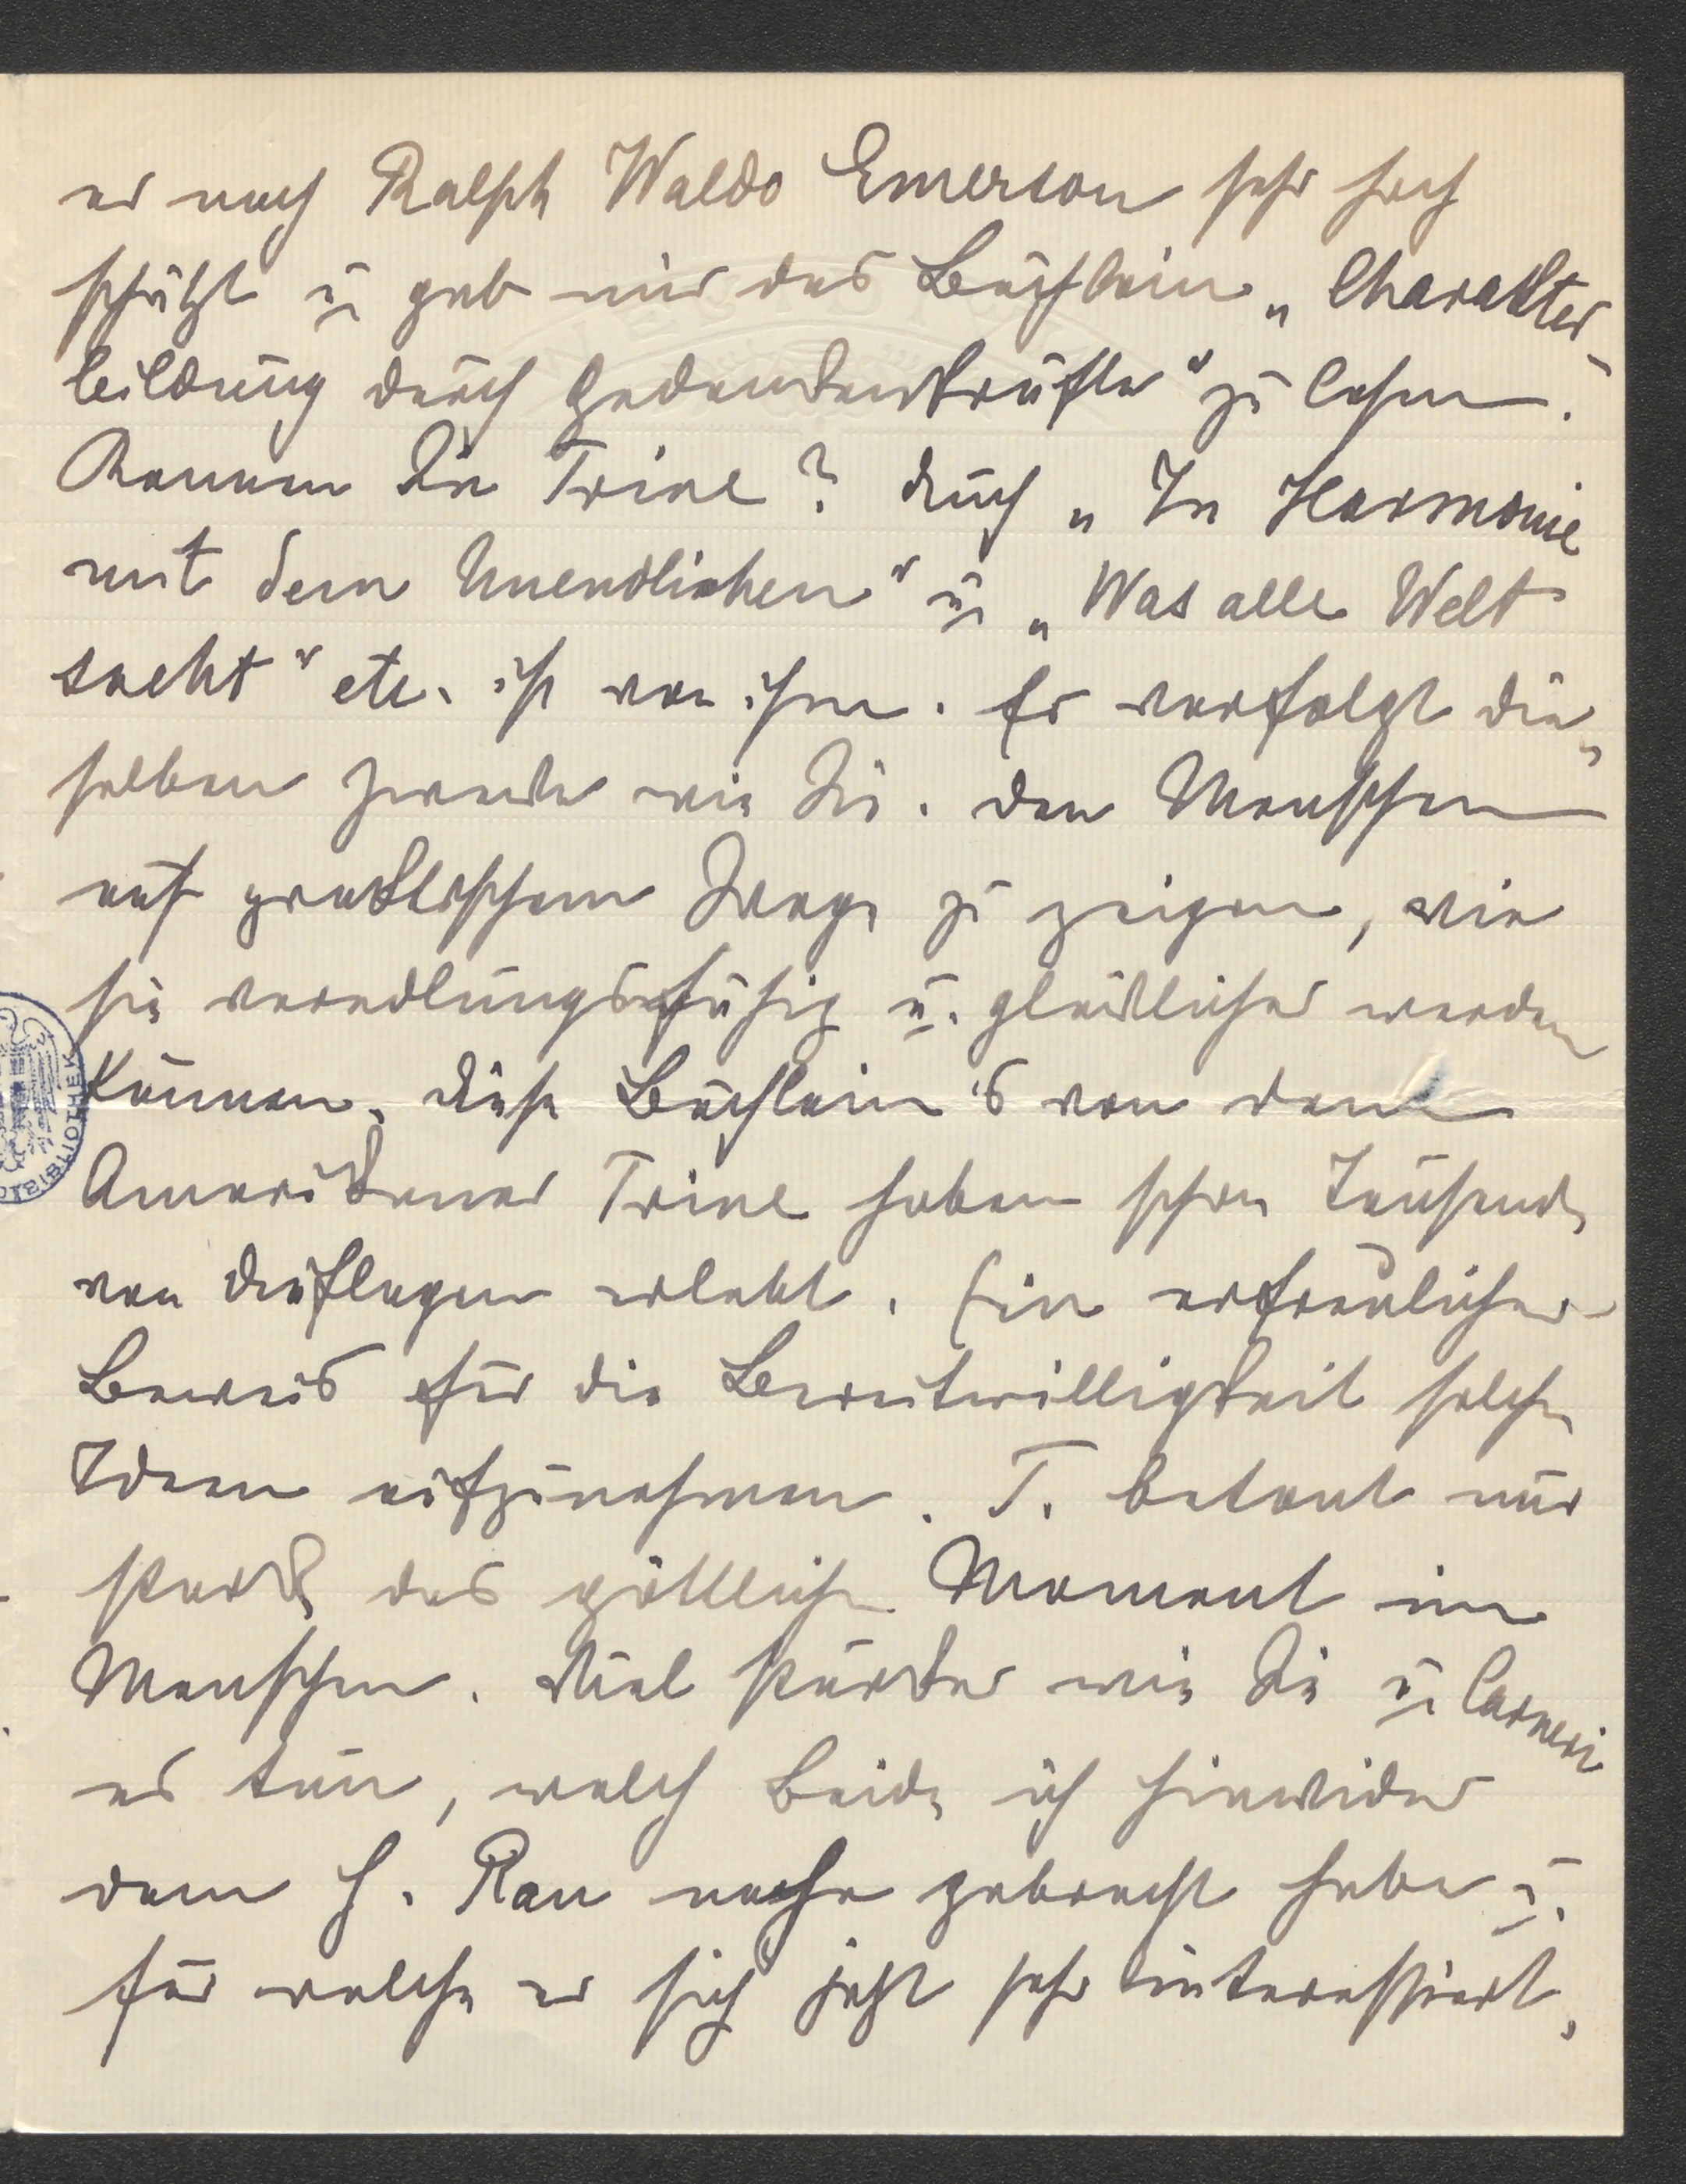 er nach Ralph Waldo Emerson sehr hoch
schätzt u. gab mir das Büchlein „Charakter-
bildung durch Gedankenkräfte“ zu lesen.
Kennen Sie Trine? Auch „In Harmonie
mit dem Unendlichen“ u. „Was alle Welt
sucht“ etc. ist von ihm. Er verfolgt die-
selben Zwecke wie Sie. Den Menschen
auf praktischem Wege zu zeigen, wie
sie veredlungsfähig u. glücklicher werden
können. Diese Büchlein's von dem
Amerikaner Trine haben schon Tausende
von Auflagen erlebt. Ein erfreulicher
Beweis für die Bereitwilligkeit solche
Ideen aufzunehmen. T. betont nur
stark das göttliche Moment im
Menschen. Viel stärker wie Sie u. Carneri
es tun, welch Beide ich hinwider
dem H. Rau nahe gebracht habe u.
für welche er sich jetzt sehr interessiert,
BIBLIOTHEK